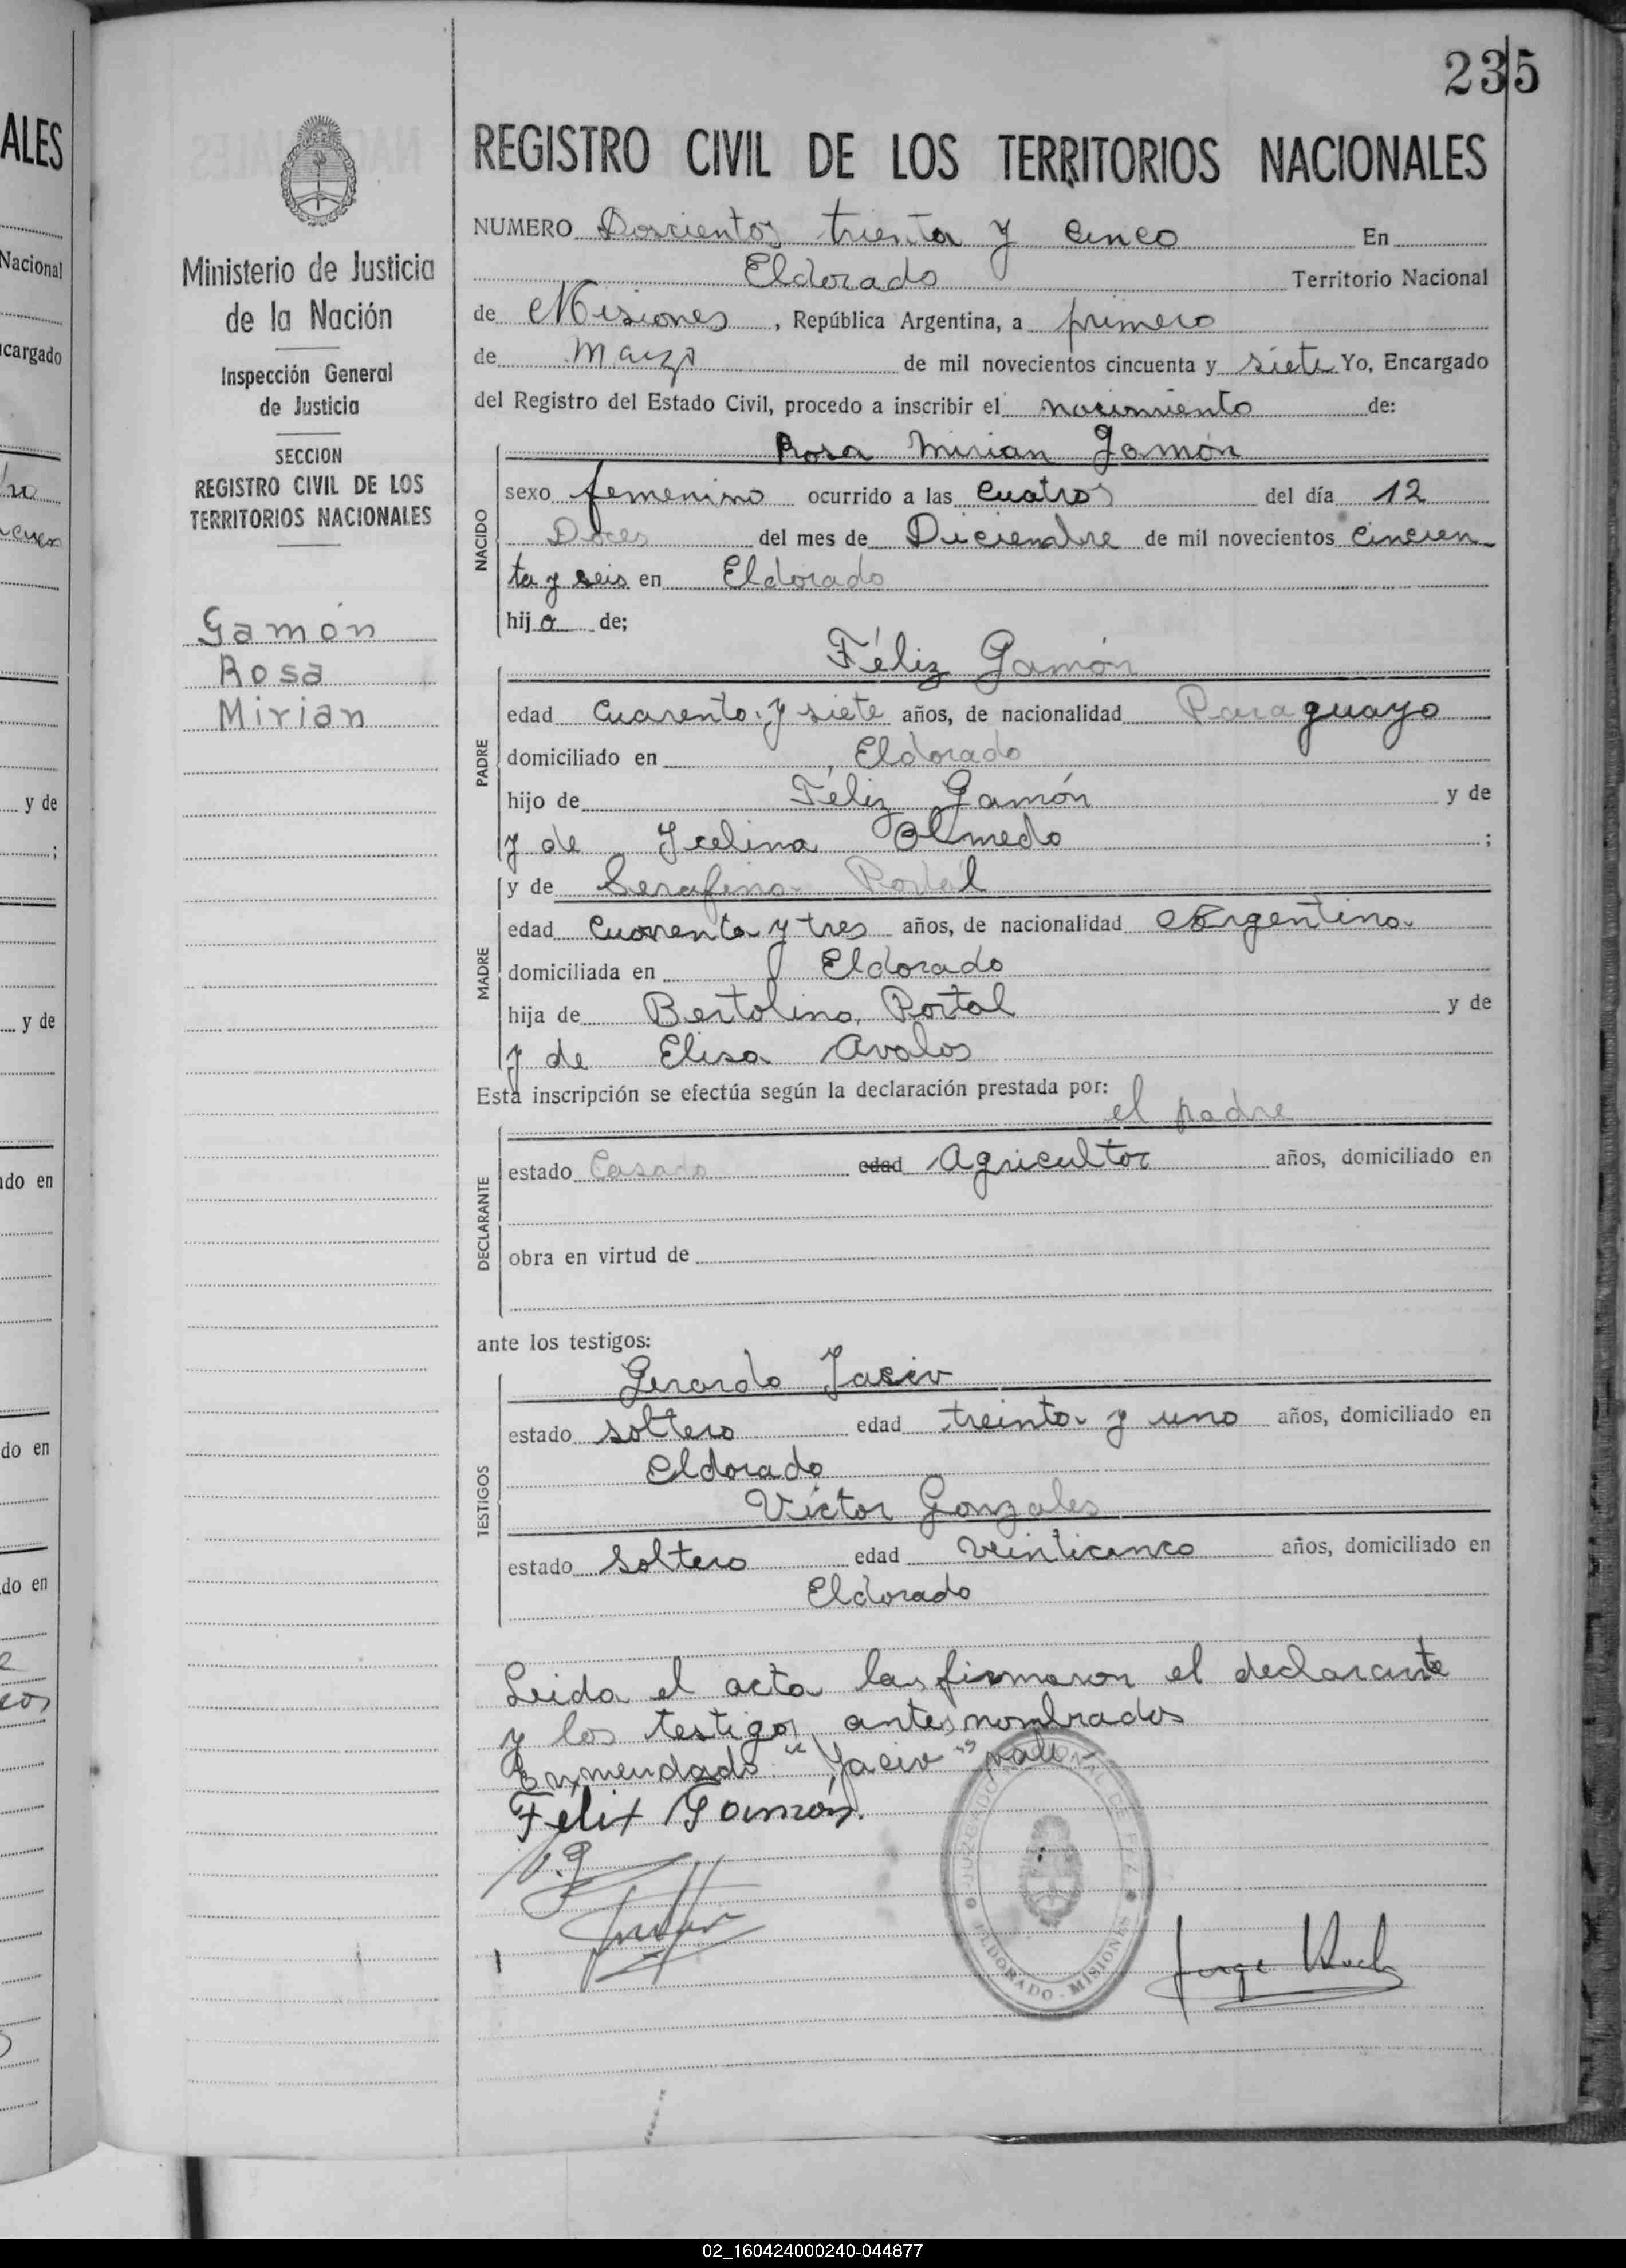 235
ALES
Nacional
cargado
y de
;
y de
do en
do en
do en
Ministerio de Justicia
de la Nación
Inspección General
de Justicia
SECCION
REGISTRO CIVIL DE LOS
TERRITORIOS NACIONALES
Gamón
Rosa
Mirian
REGISTRO CIVIL DE LOS TERRITORIOS NACIONALES
NUMERO Doscientos trienta y cinco En
Eldorado Territorio Nacional
de Misiones, República Argentina, a primero
de Marzo de mil novecientos cincuenta y siete Yo, Encargado
del Registro del Estado Civil, procedo a inscribir el nacimiento de:
Rosa Mirian Gamón
NACIDO
sexo femenino ocurrido a las cuatros del día 12
Doces del mes de Diciembre de mil novecientos cincuen-
ta y seis en Eldorado
hija de;
Féliz Gamón
PADRE
edad Cuarenta y siete años, de nacionalidad Paraguayo
domiciliado en Eldorado
hijo de Féliz Gamón y de
y de Ycelina Olmedo ;
MADRE
y de Serafina Portal
edad Cuarenta y tres años, de nacionalidad Argentina
domiciliada en Eldorado
hija de Bertolino Portal y de
y de Elisa Avalos
Esta inscripción se efectúa según la declaración prestada por:
el padre
DECLARANTE
estado Casado edad Agricultor años, domiciliado en
obra en virtud de
ante los testigos:
TESTIGOS
Gerardo Jaciw
estado soltero edad treinta y uno años, domiciliado en
Eldorado
Victor Gonzales
estado Soltero edad veinticinco años, domiciliado en
Eldorado
Leida el acta las firmaron el declarante
y los testigos antes nombrados
Enmendado: "Jaciw" vale
Félix Gamón.
V. G
JUZGADO NACIONAL DE PAZ
ELDORADO - MISIONES
02_160424000240-044877